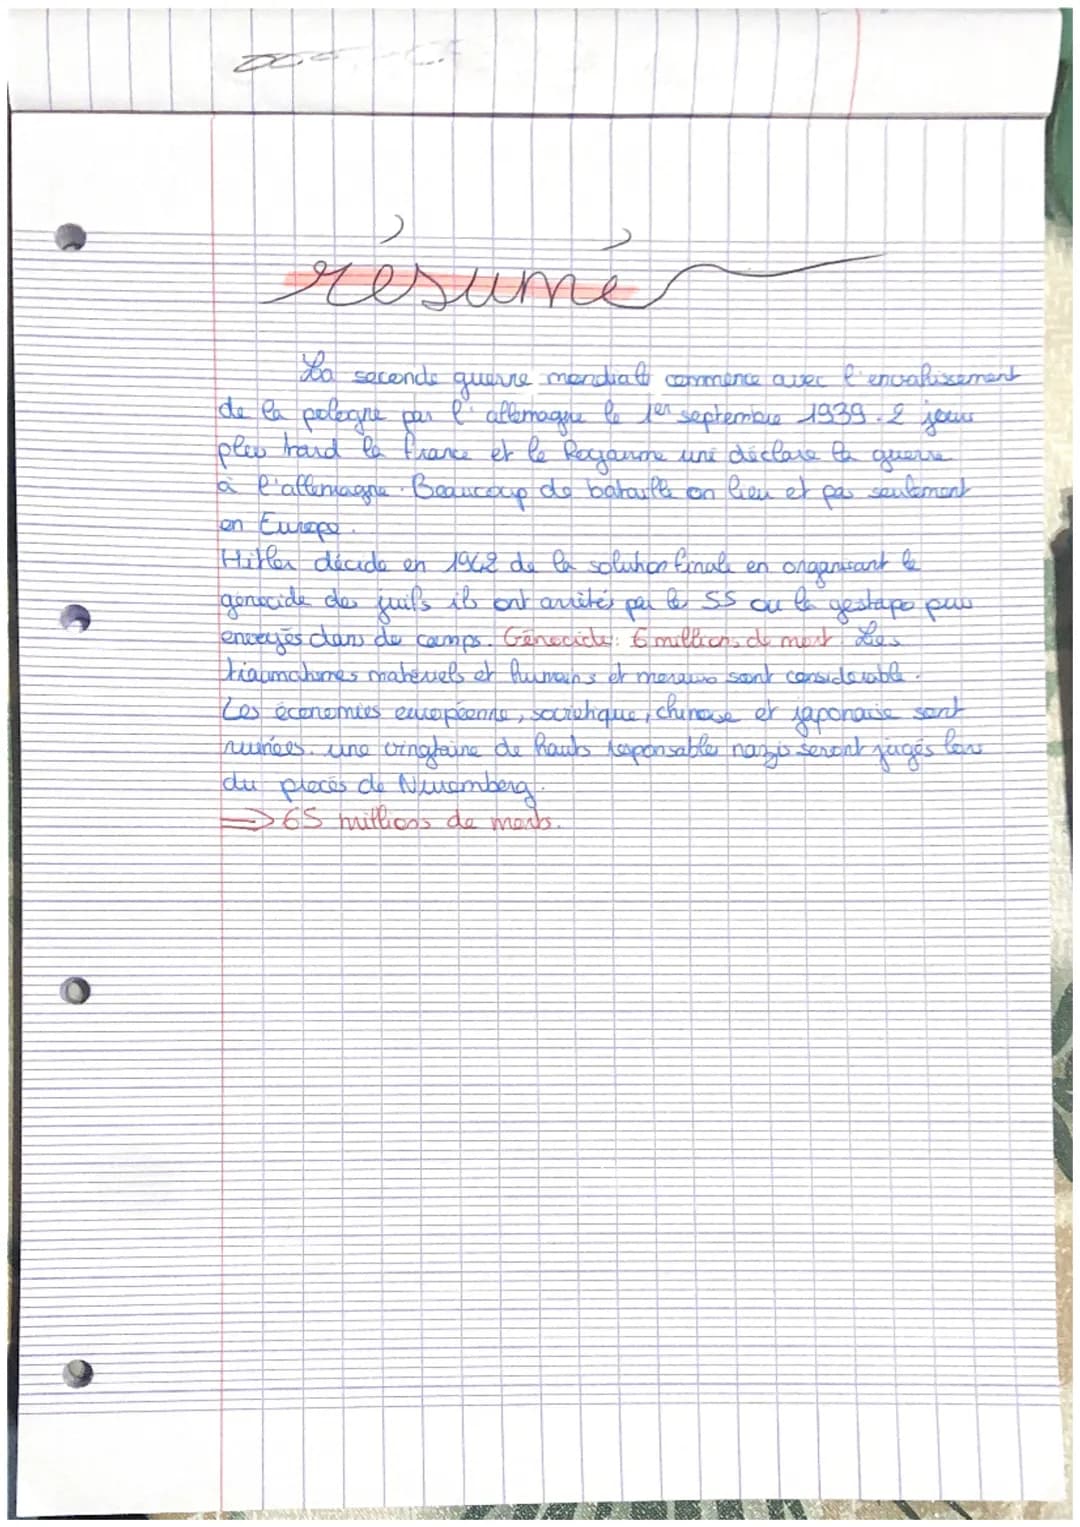 résumé
La seconde guerre mondiale commence avec l'envahissement
de la pologne par l'allemagne le 1er septembre 1939. 2 jours
plus trard la france et le Royaume uni déclare la guerre
à l'allemagne. Beaucoup de bataille on lieu et pas seulement
en Europe.
Hitler décide en 1942 de la solution finale en organisant le
génocide des juifs ils ont arrêtés par le SS ou la gestapo puis
envoyés dans de camps. Génocide: 6 millions de mort Les
traumatismes matériels et humains et moraux sont considérable.
Les économies européenne, soviétique, chinoise et japonaise sont
ruinées. une vingtaine de hauts responsable nazis seront jugés lors
du procès de Nuremberg.
=> 65 millions de morts.